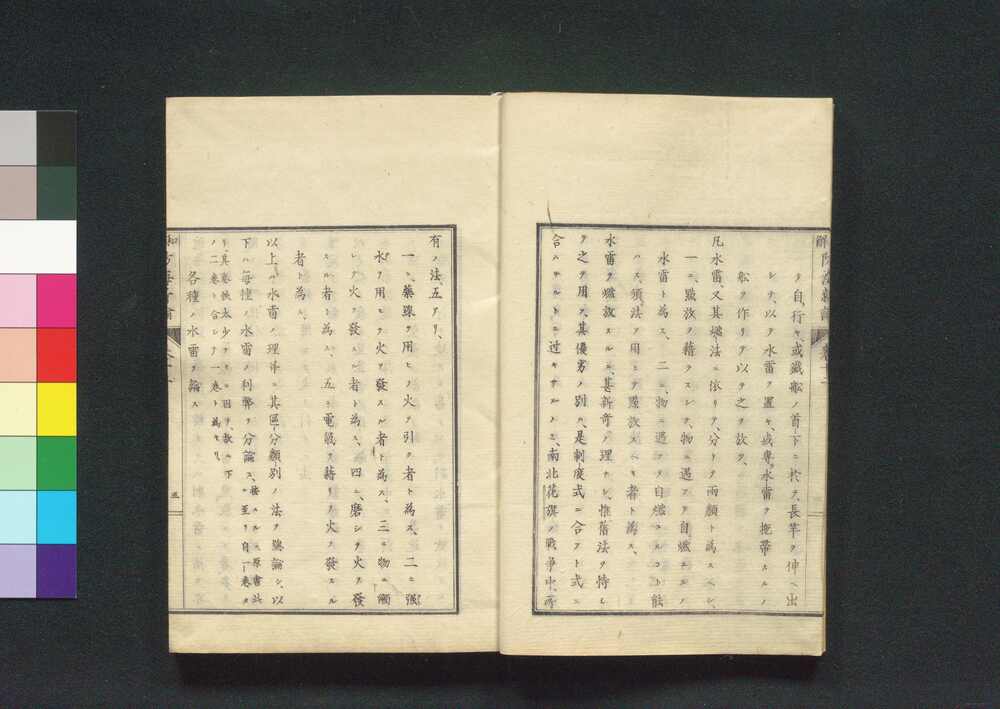 タ自ラ行キ、或ハ滅船ノ首下ニ於テ、長竿ヲ伸ヘ出
シテ、以テ水雷ヲ置キ、或ハ専ラ水雷ヲ拖帶スルノ
船ヲ作リテ以テ之ヲ放ツ、
凡水雷ハ、又其爆法ニ依リテ、分テ兩類ト為スヘシ、
一ニ、點放ヲ藉ラスシテ、物ニ遇フテ自爆スルノ
水雷ト為ス、二ニ、物ニ遇フテ自爆スルコト能
ハス、須ク法ヲ用ヒテ點放スヘキ者ト為ス、
水雷ヲ爆放スルハ、甚新奇ノ理ナシ、惟舊法ヲ恃ミ
テ之ヲ用ス、其優劣ノ別ハ、是制度式ニ合フト式ニ
合ハサルトニ過キサルノミ、南北花旗ノ戰爭中、所
有ノ法、五アリ、
一ニ、藥線ヲ用ヒテ火ヲ引ク者ト為ス、二ニ、強
水ヲ用ヒテ火ヲ發スル者ト為ス、三ニ、物ニ觸
レテ火ヲ發スル者ト為ス、四ニ、磨シテ火ヲ發
スル者ト為ス、五ニ、電氣ヲ藉リテ火ヲ發スル
者ト為ス、
以上ハ水雷ノ理并ニ其區分類別ノ法ヲ總論シ、以
下ハ每種ノ水雷ノ利弊ヲ分論ス、
各種ノ水雷ヲ論ス
五